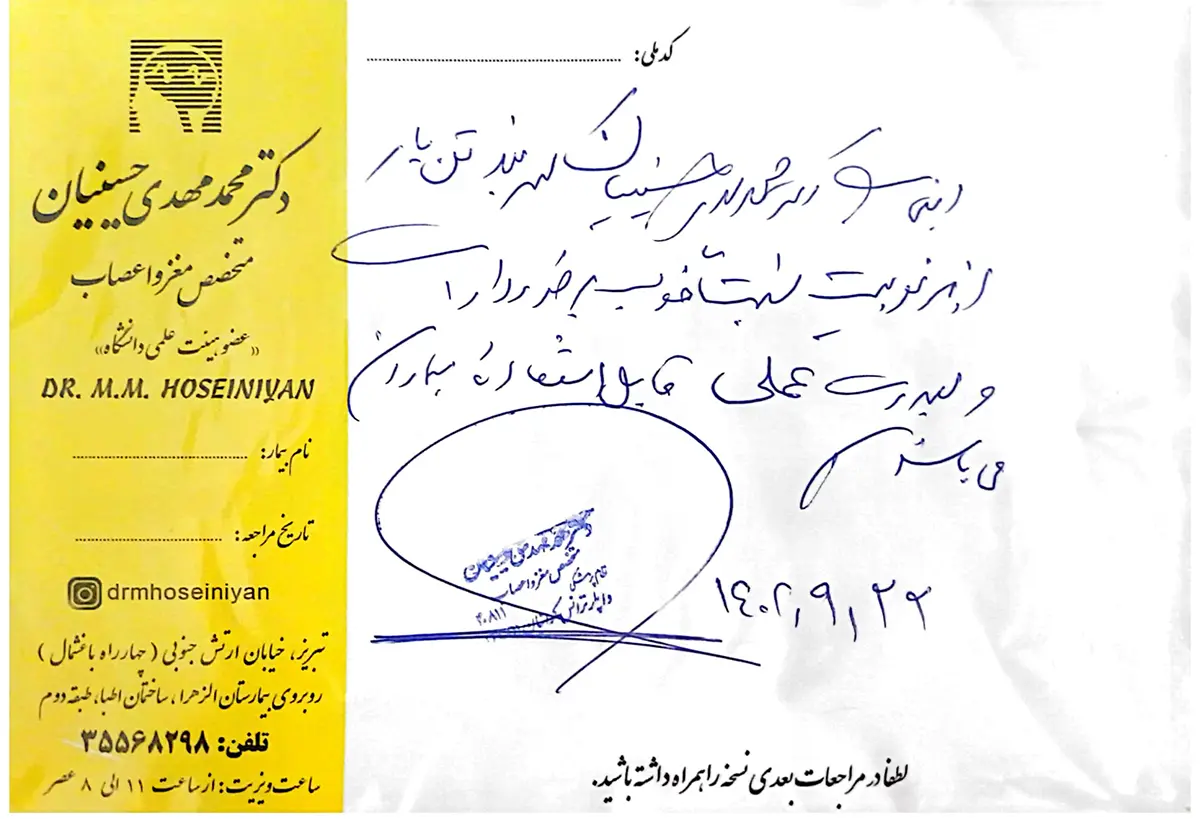 دکتر محمد مهدی حسینیان
متخصص مغز و اعصاب
«عضو هیئت علمی دانشگاه»
DR. M.M. HOSEINIYAN
نام بیمار:
تاریخ مراجعه:
drmhoseiniyan
تبریز، خیابان ارتش جنوبی (چهارراه باغشمال)
روبروی بیمارستان الزهرا، ساختمان اطبا، طبقه دوم
تلفن: ۳۵۵۶۸۲۹۸
ساعت ویزیت: از ساعت ۱۱ الی ۸ عصر
کد ملی:
اینجانب دکتر محمد مهدی حسینیان کمربند تن یار
از کیفیت خوب برخوردار
و عملی قابل استفاده بیماران
می باشد
۱۴۰۲/۹/۲۳
دکتر محمد مهدی حسینیان
متخصص مغز و اعصاب
لطفا در مراجعات بعدی نسخه را همراه داشته باشید.